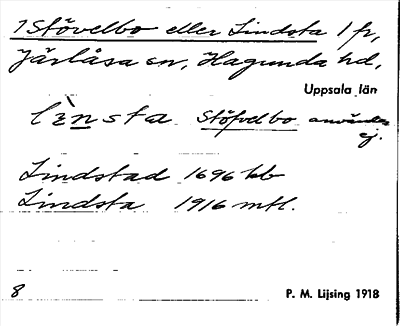 1 Stövelbo eller Lindsta 1 fr,
Järlåsa sn, Hagunda hd,
Uppsala län
lìnsta Stöfvelbo användes
ej.
Lindstad 1696 kb
Lindsta 1916 mtl.
8 P. M. Lijsing 1918